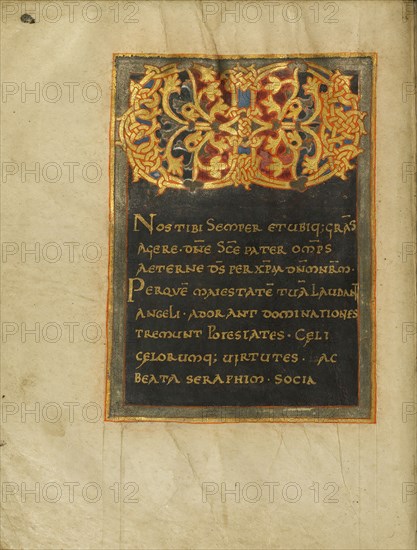 NOS TIBI SEMPER ET UBIQ; GRĀS
AGERE. DN̄E SC̄E PATER OMP̄S
AETERNE DS̄ PER XP̄M DN̄M NR̄M.
PER QUĒ MAIESTATĒ TUĀ LAUDANT
ANGELI. ADORANT DOMINATIONES
TREMUNT POTESTATES. CELI
CELORUMQ; UIRTUTES. AC
BEATA SERAPHIM. SOCIA
PHOTO12